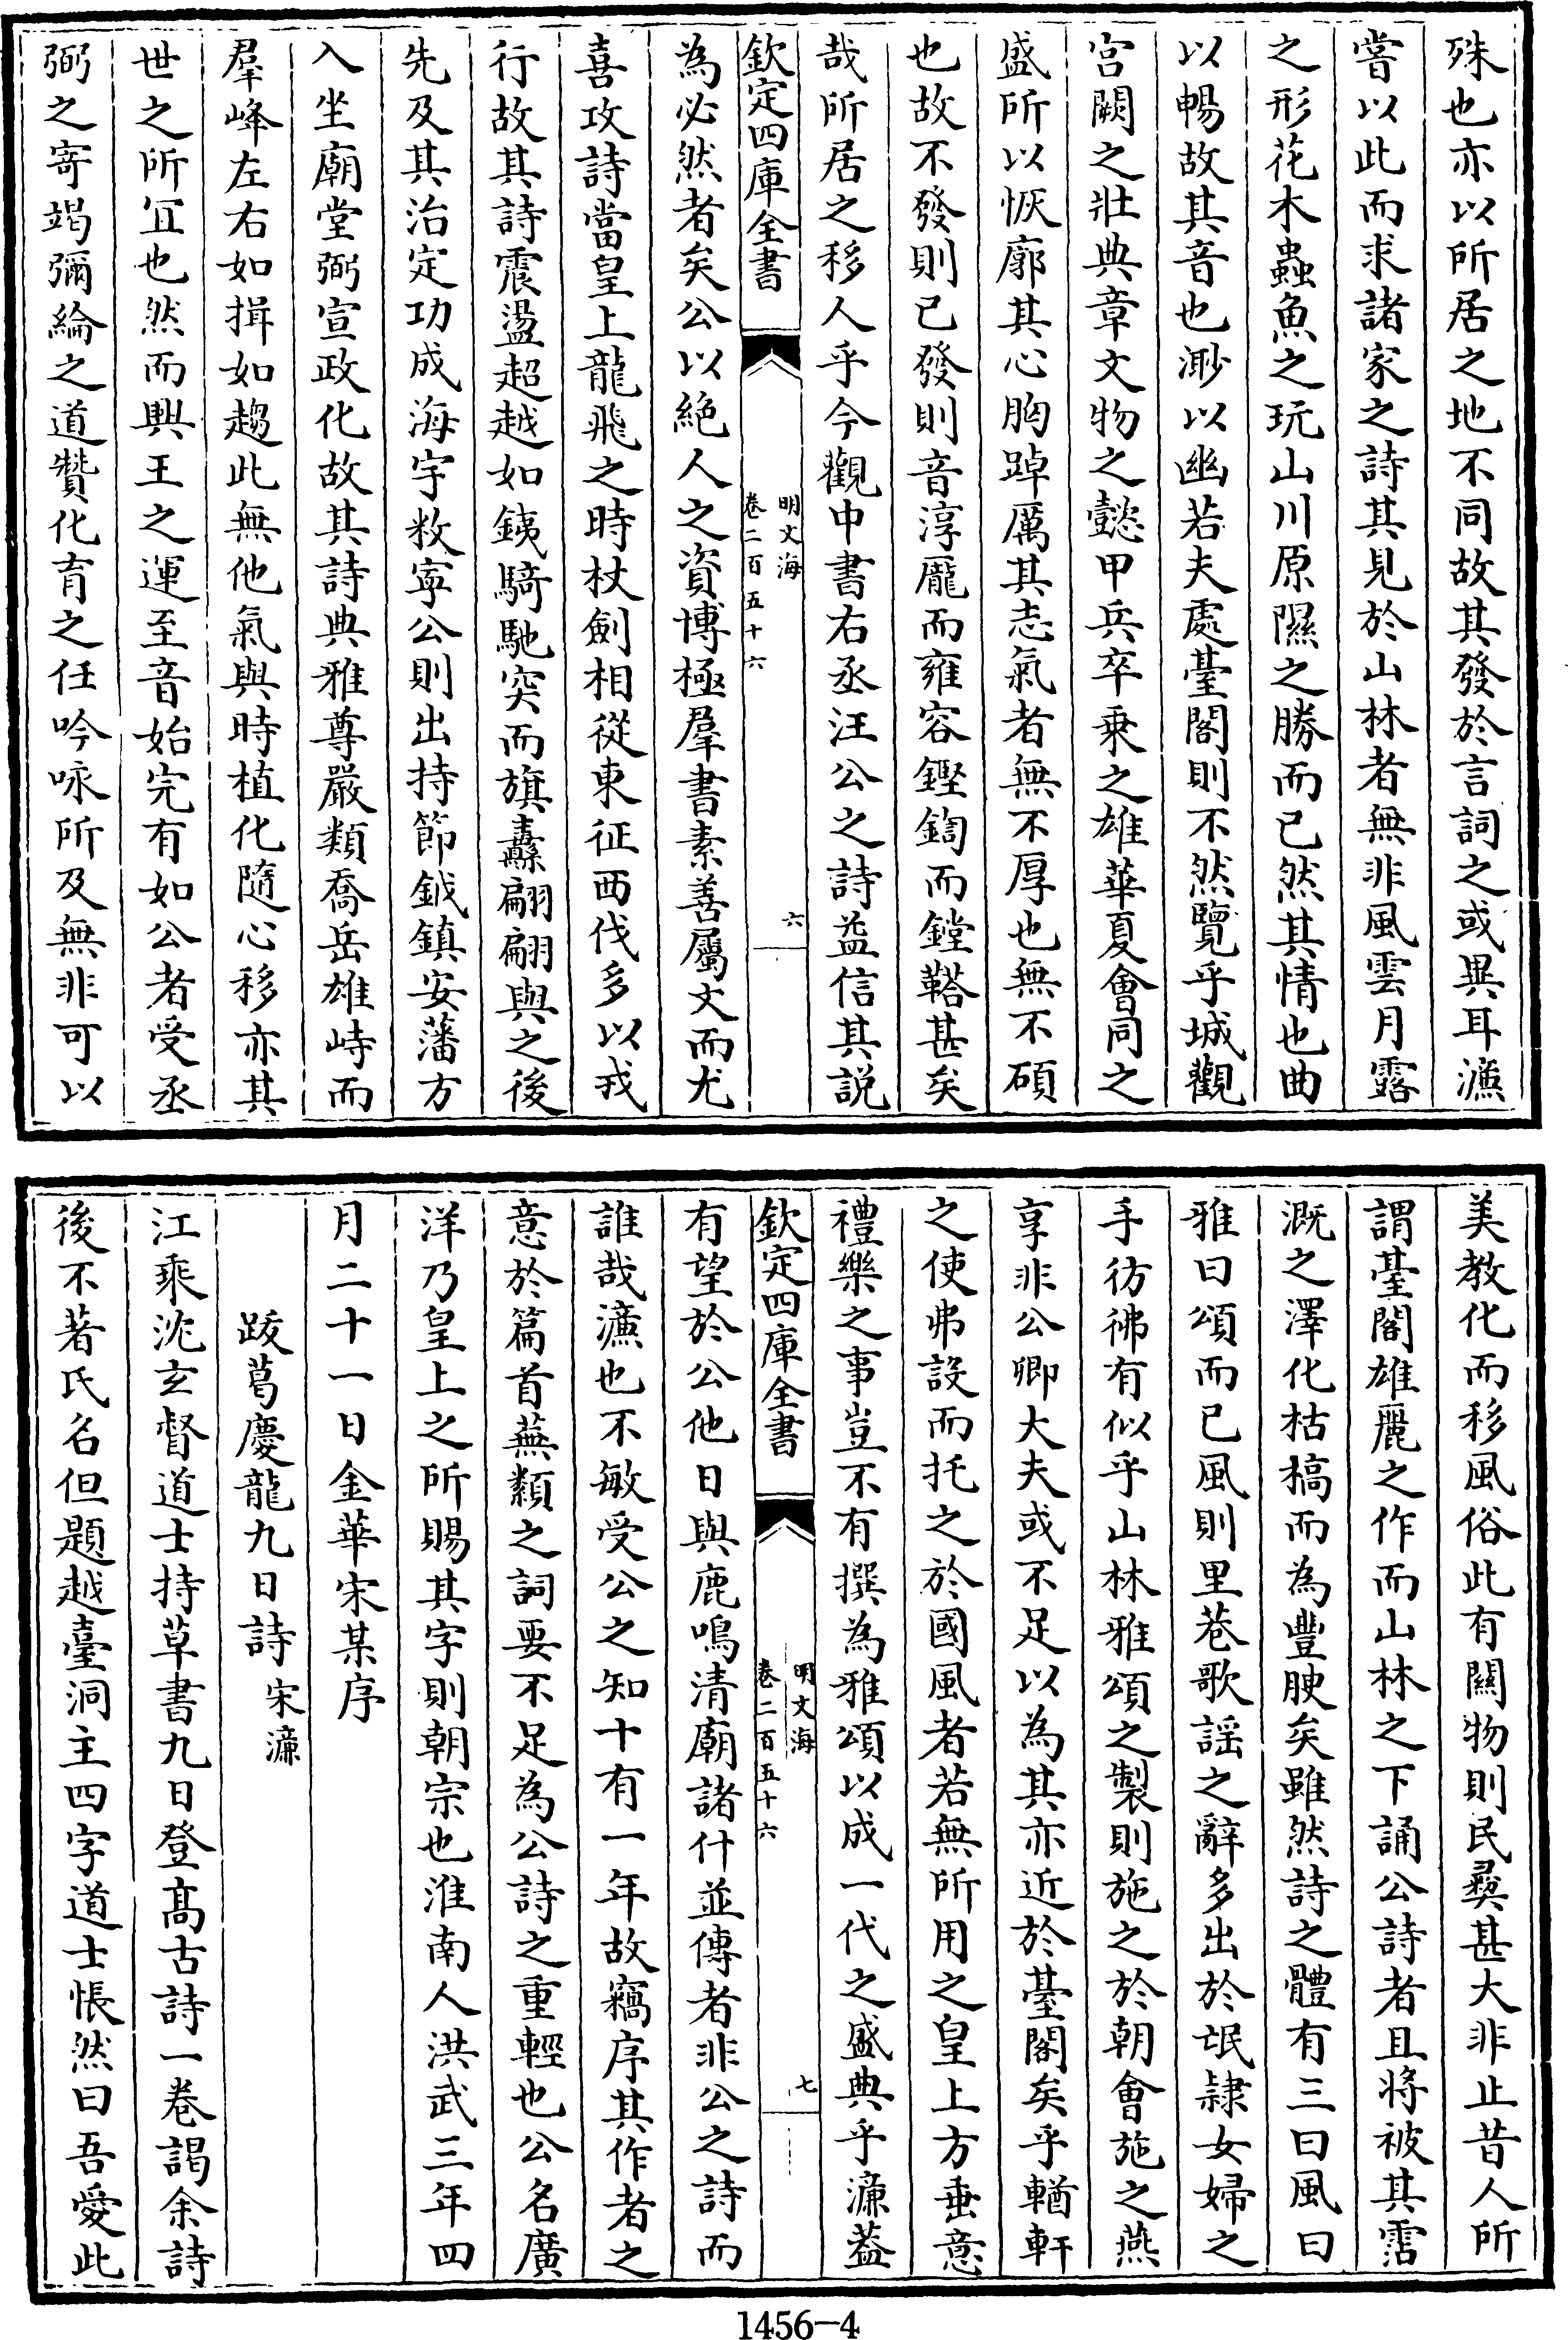 殊也亦以所居之地不同故其發於言詞之或異耳濂
嘗以此而求諸家之詩其見於山林者無非風雲月露
之形花木蟲魚之玩山川原隰之勝而已然其情也曲
以暢故其音也渺以幽若夫處臺閣則不然覽乎城觀
宫闕之壯典章文物之懿甲兵卒乗之雄華夏㑹同之
盛所以恢廓其心胸踔厲其志氣者無不厚也無不碩
也故不發則已發則音淳龎而雍容鏗鍧而鏜鞳甚矣
哉所居之移人乎今觀中書右丞汪公之詩益信其說
欽定四庫全書
明文海
卷二百五十六
六
為必然者矣公以絶人之資博極羣書素善屬文而尤
喜攻詩當皇上龍飛之時杖劍相從東征西伐多以戎
行故其詩震盪超越如銕騎馳突而旗纛翩翩與之後
先及其治定功成海宇敉寧公則出持節鉞鎮安藩方
入坐廟堂弼宣政化故其詩典雅尊嚴類喬岳雄峙而
羣峰左右如揖如趨此無他氣與時植化隨心移亦其
世之所冝也然而興王之運至音始完有如公者受丞
弼之寄竭彌綸之道贊化育之任吟咏所及無非可以
美教化而移風俗此有關物則民彛甚大非止昔人所
謂臺閣雄麗之作而山林之下誦公詩者且將被其霑
溉之澤化枯槁而為豐腴矣雖然詩之體有三曰風曰
雅曰頌而已風則里巷歌謡之辭多出於氓隷女婦之
手彷彿有似乎山林雅頌之製則施之於朝㑹施之燕
享非公卿大夫或不足以為其亦近於臺閣矣乎輶軒
之使弗設而托之於國風者若無所用之皇上方垂意
禮樂之事豈不有撰為雅頌以成一代之盛典乎濂葢
欽定四庫全書
明文海
卷二百五十六
七
有望於公他日與鹿鳴清廟諸什並傳者非公之詩而
誰哉濂也不敏受公之知十有一年故竊序其作者之
意於篇首蕪纇之詞要不足為公詩之重輕也公名廣
洋乃皇上之所賜其字則朝宗也淮南人洪武三年四
月二十一日金華宋某序
跋葛慶龍九日詩 宋濂
江乘沈玄督道士持草書九日登髙古詩一卷謁余詩
後不著氏名但題越臺洞主四字道士悵然曰吾愛此
1456-4